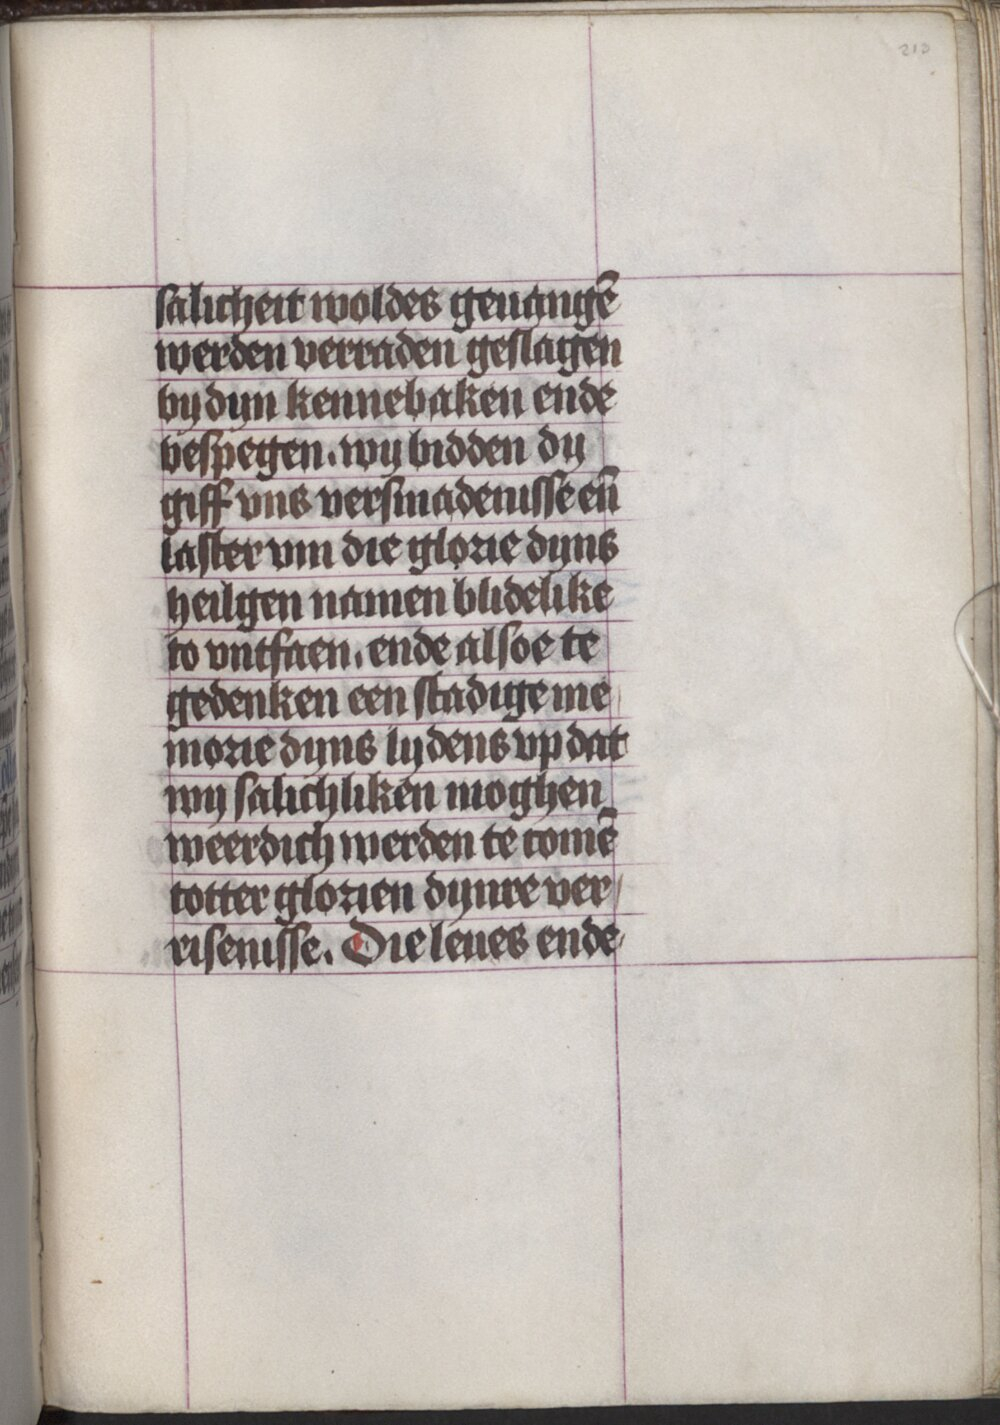 213
salicheit woldes geuangē
werden verraden geslagen
by dyn kennebaken ende
bespegen. wy bidden dy
giff vns versmadenisse eñ
laster vm die glorie dyns
heilgen namen blidelike
to vntfaen. ende alsoe te
gedenken een stadige me
morie dyns lydens vp dat
wy salichliken moghen
weerdich werden te comē
totter glorien dynre ver/
risenisse. Die leues ende